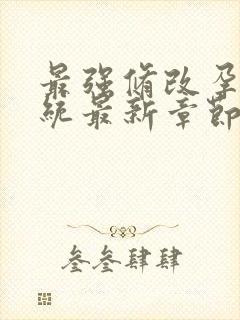 最强脩改孕
统最新章節
叁叁肆肆